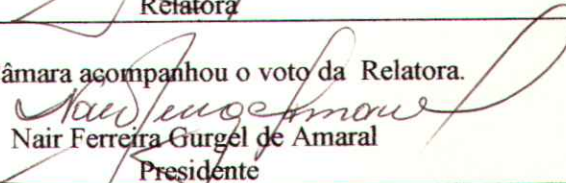 Relatora
âmara acompanhou o voto da Relatora.
Nair Ferreira Gurgel de Amaral
Presidente